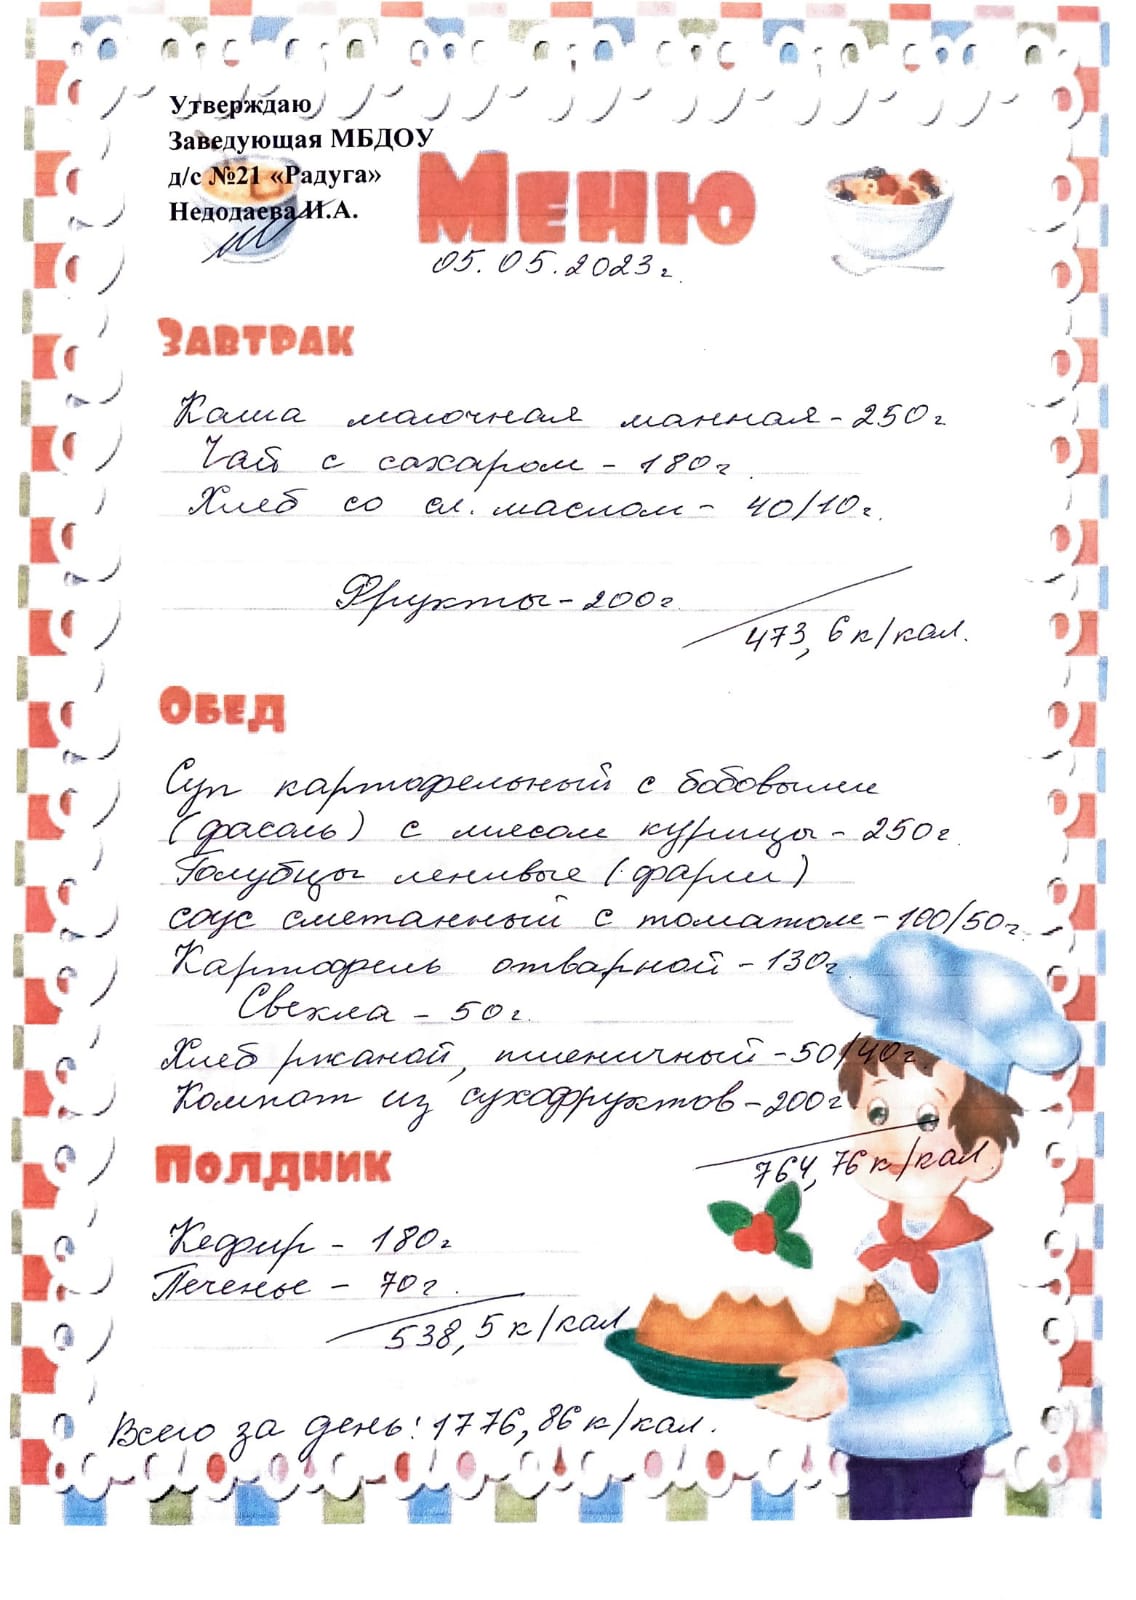 Утверждаю
Заведующая МБДОУ
д/с №21 «Радуга»
Недодаева И.А.
Меню
05.05.2023г.
Завтрак
Каша молочная манная - 250г
Чай с сахаром - 180г.
Хлеб со сл. маслом - 40/10г.
Фрукты - 200г.
473,6 к/кал.
Обед
Суп картофельный с бобовыми
(фасоль) с мясом курицы - 250г.
Голубцы ленивые (фарш)
соус сметанный с томатом - 100/50г.
Картофель отварной - 130г
Свекла - 50г.
Хлеб ржаной, пшеничный - 50/40г.
Компот из сухофруктов - 200г
764,76 к/кал.
Полдник
Кефир - 180г
Печенье - 70г.
538,5 к/кал
Всего за день: 1776,86 к/кал.